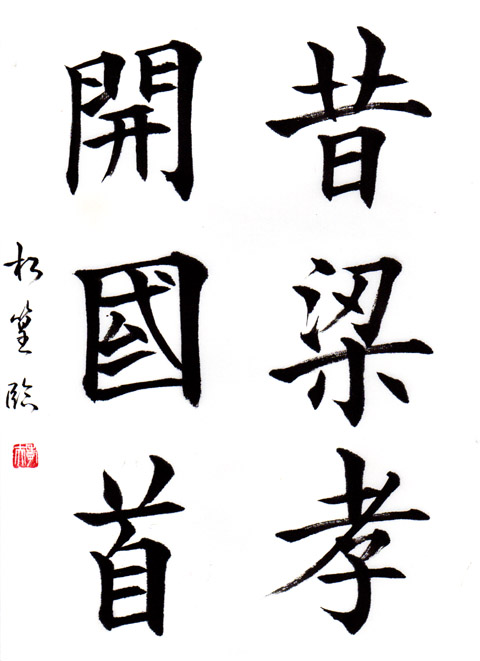 昔梁孝
開國首
松篁臨